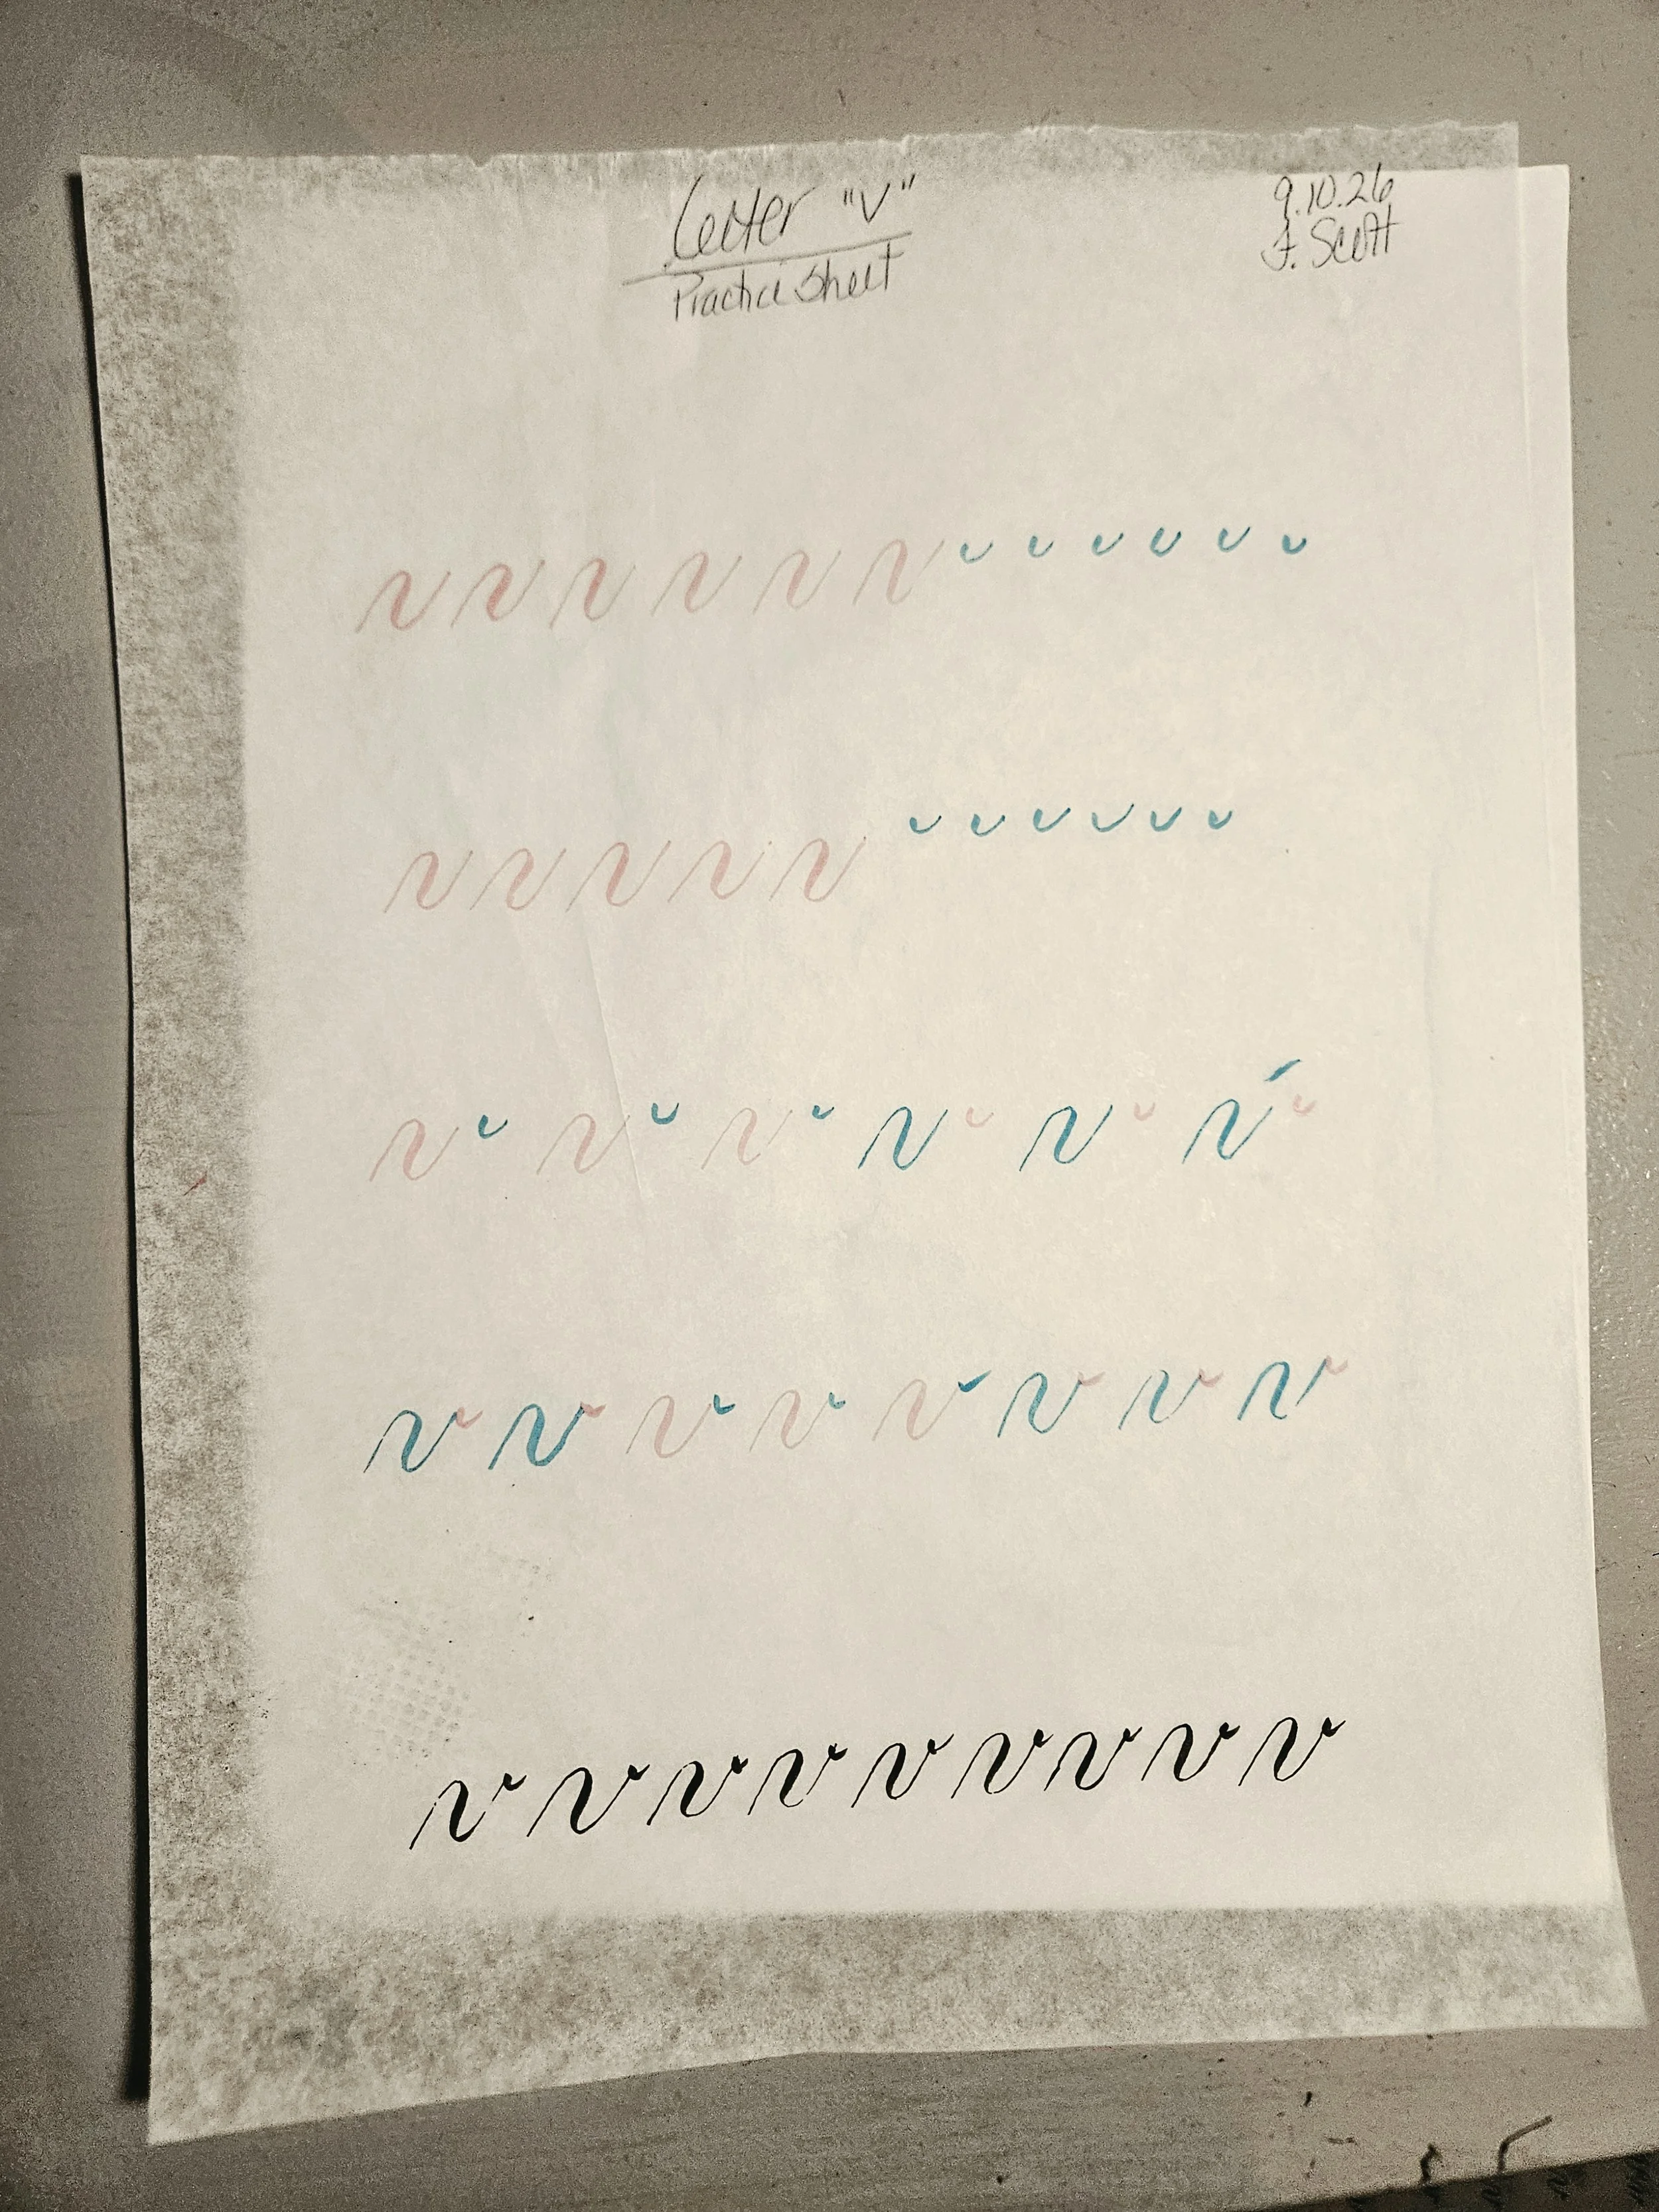 Letter "V"
Practice Sheet
9.10.26
F. Scott
v v v v v v
v v v v v
v v v v v v
v v v v v v v v
v v v v v v v v v